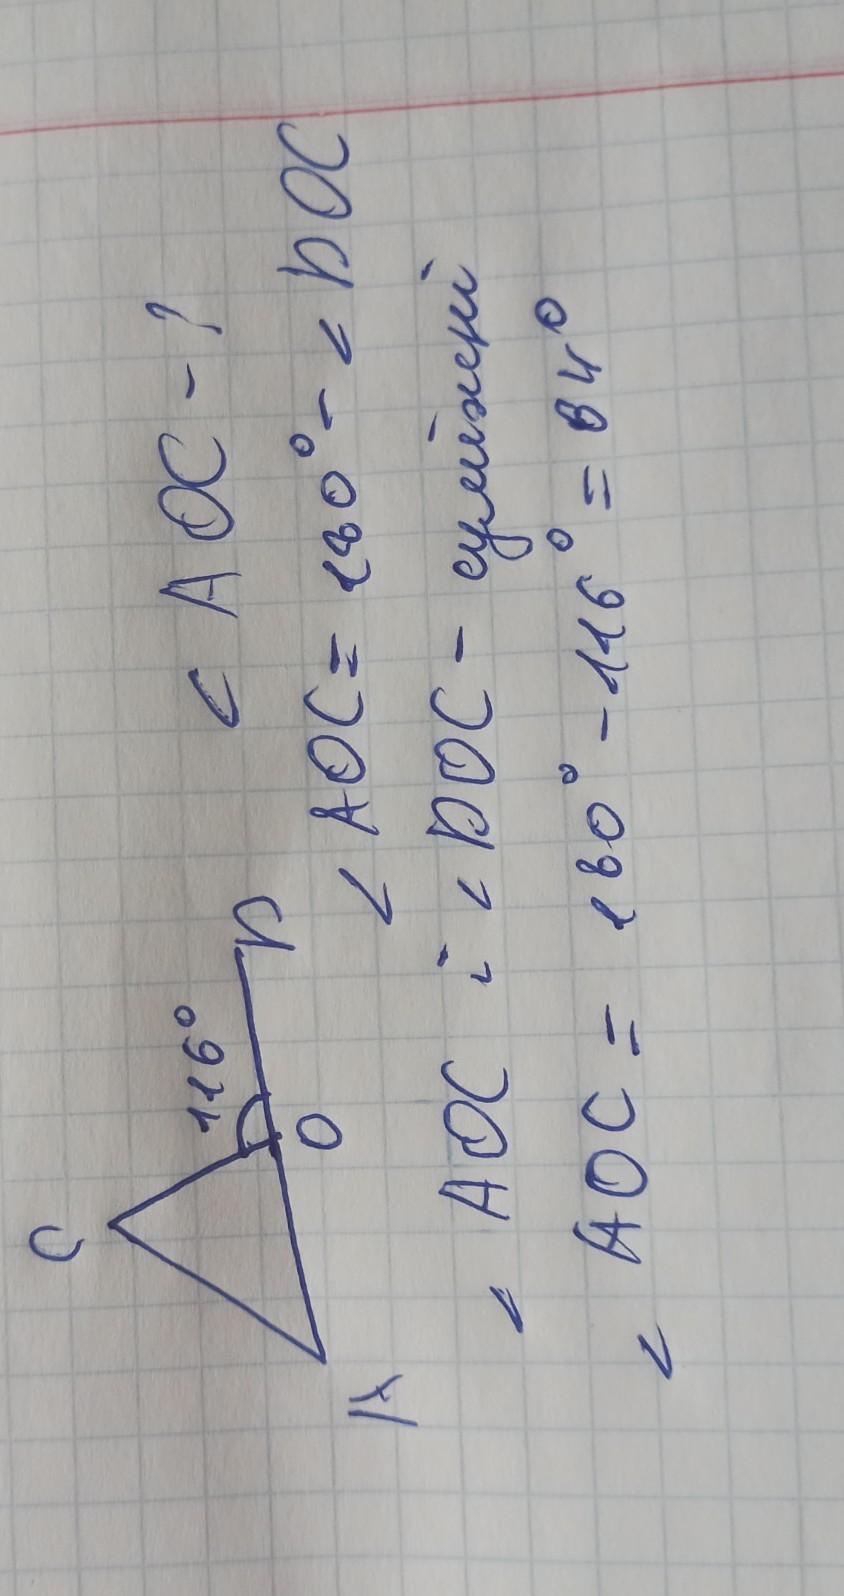 C
116°
D
O
A
< AOC - ?
< AOC = 180° - < DOC
< AOC і < DOC - суміжні
< AOC = 180° - 116° = 84°